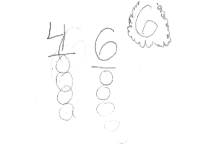 4 6 6